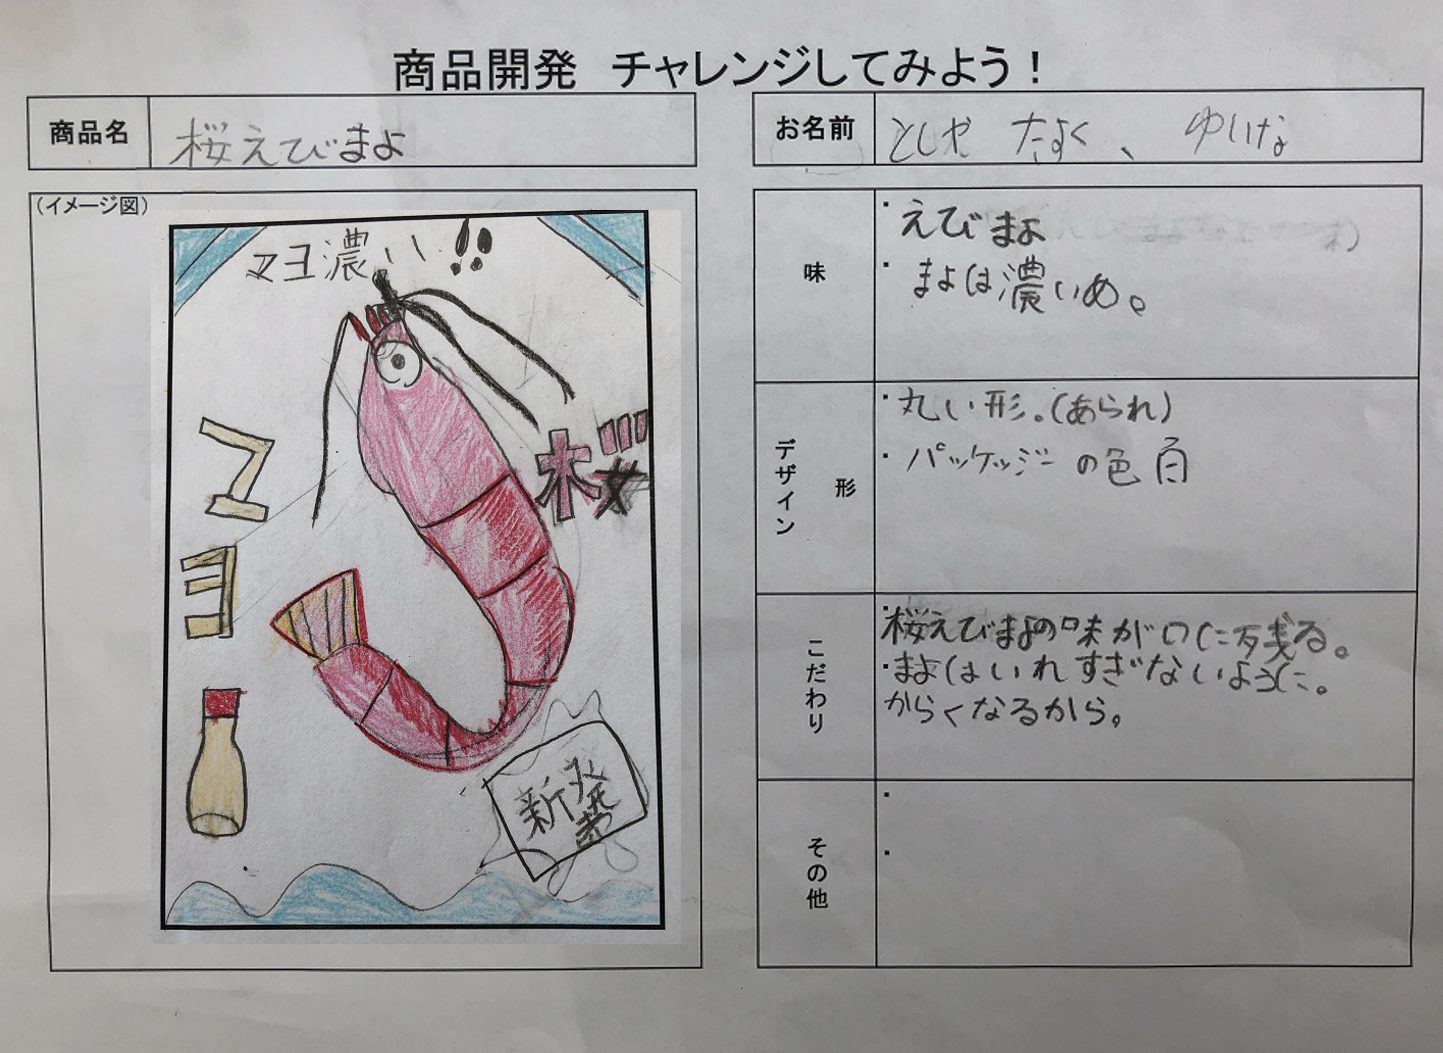 商品開発 チャレンジしてみよう！
商品名
桜えびまよ
お名前
としや たすく、 ゆいな
（イメージ図）
マヨ濃い!!
桜
マヨ
新発売
味
・えびまよ
・まよは濃いめ。
デザイン 形
・丸い形。(あられ)
・パッケッジーの色 白
こだわり
・桜えびまよの味が口に残る。
・まよはいれすぎないように。
からくなるから。
その他
・
・